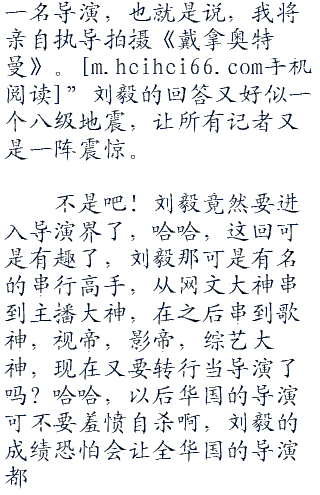 一名导演，也就是说，我将
亲自执导拍摄《戴拿奥特
曼》。[m.hcihci66.com手机
阅读]”刘毅的回答又好似一
个八级地震，让所有记者又
是一阵震惊。
不是吧！刘毅竟然要进
入导演界了，哈哈，这回可
是有趣了，刘毅那可是有名
的串行高手，从网文大神串
到主播大神，在之后串到歌
神，视帝，影帝，综艺大
神，现在又要转行当导演了
吗？哈哈，以后华国的导演
可不要羞愤自杀啊，刘毅的
成绩恐怕会让全华国的导演
都